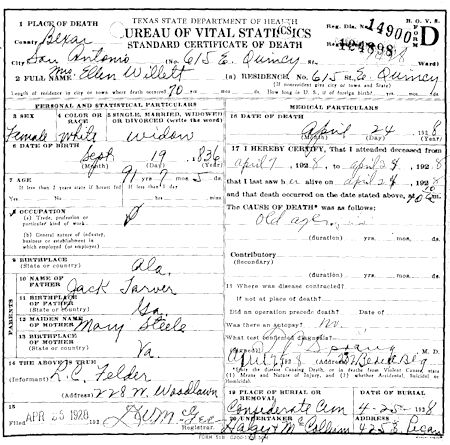 TEXAS STATE DEPARTMENT OF HEALTH
BUREAU OF VITAL STATISTICS
STANDARD CERTIFICATE OF DEATH
1 PLACE OF DEATH
County Bexar
City San Antonio No. 615 E. Quincy
Reg. Dis. No. 14900
B. O. V. S.
FORM D
Ward)
2 FULL NAME Mrs. Ellen Willett (a) RESIDENCE. No. 615 St. E. Quincy
(If nonresident give city or town and State)
Length of residence in city or town where death occurred 70 yrs. mos. ds. How long in U. S., if of foreign birth? yrs. mos. ds.
PERSONAL AND STATISTICAL PARTICULARS
3 SEX
Female
4 COLOR OR RACE
White
5 SINGLE, MARRIED, WIDOWED OR DIVORCED (write the word)
Widow
6 DATE OF BIRTH
Sept 19 1836
(Month) (Day) (Year)
7 AGE
91 yrs 7 mos. 5 ds.
If less than 2 years state if breast fed
If less than 1 day
8 OCCUPATION
(a) Trade, profession or particular kind of work
(b) General nature of industry, business or establishment in which employed (or employer)
9 BIRTHPLACE
(State or country) Ala.
PARENTS
10 NAME OF FATHER Jack Tarver
11 BIRTHPLACE OF FATHER
(State or country) Ga.
12 MAIDEN NAME OF MOTHER Mary Steele
13 BIRTHPLACE OF MOTHER
(State or country) Va.
14 THE ABOVE IS TRUE
(Informant) R.C. Felder
228 W. Woodlawn
15 APR 25 1928
MEDICAL PARTICULARS
16 DATE OF DEATH
April 24 1928
(Month) (Day) (Year)
17 I HEREBY CERTIFY, That I attended deceased from
april 7, 1928, to april 24, 1928
that I last saw her alive on april 24, 1928
and that death occurred on the date stated above, at
The CAUSE OF DEATH* was as follows:
old age
(duration) yrs. mos. ds.
Contributory
(Secondary)
(duration) yrs. mos. ds.
18 Where was disease contracted?
If not at place of death?
Did an operation precede death?
Was there an autopsy? no.
What test confirmed diagnosis?
M. D.
*State the Disease Causing Death, or in deaths from Violent Causes, state (1) Means and Nature of Injury, and (2) whether Accidental, Suicidal or Homicidal.
19 PLACE OF BURIAL OR REMOVAL
Confederate Cem 4-25-1928
20 UNDERTAKER
425 S. Pecan